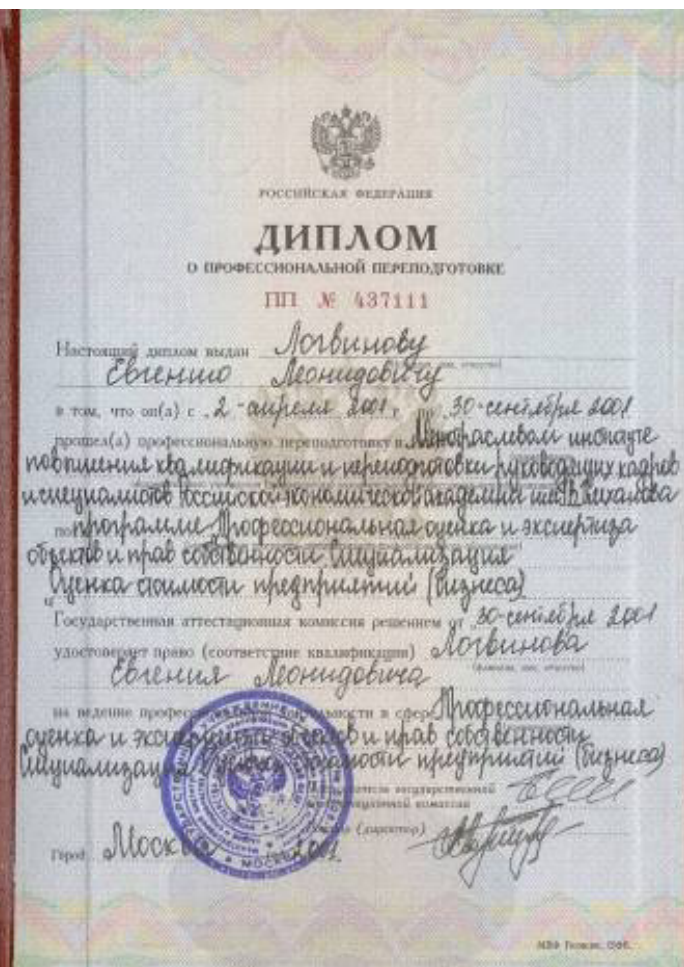 РОССИЙСКАЯ ФЕДЕРАЦИЯ
ДИПЛОМ
О ПРОФЕССИОНАЛЬНОЙ ПЕРЕПОДГОТОВКЕ
ПП № 437111
Настоящий диплом выдан Логвинову
Евгению Леонидовичу
в том, что он(а) с „2“ апреля 2001 г. по „30“ сентября 2001
прошел(а) профессиональную переподготовку в Межотраслевом институте
повышения квалификации и переподготовки руководящих кадров
и специалистов Российской экономической академии им. Г.В. Плеханова
по программе „Профессиональная оценка и экспертиза
объектов и прав собственности. Специализация
Оценка стоимости предприятий (бизнеса)
Государственная аттестационная комиссия решением от „30“ сентября 2001
удостоверяет право (соответствие квалификации) Логвинова
(фамилия, имя, отчество)
Евгения Леонидовича
на ведение профессиональной деятельности в сфере Профессиональная
оценка и экспертиза объектов и прав собственности
Специализация Оценка стоимости предприятий (бизнеса)
Председатель государственной
аттестационной комиссии
(директор)
Город Москва 2001
МОСКВА